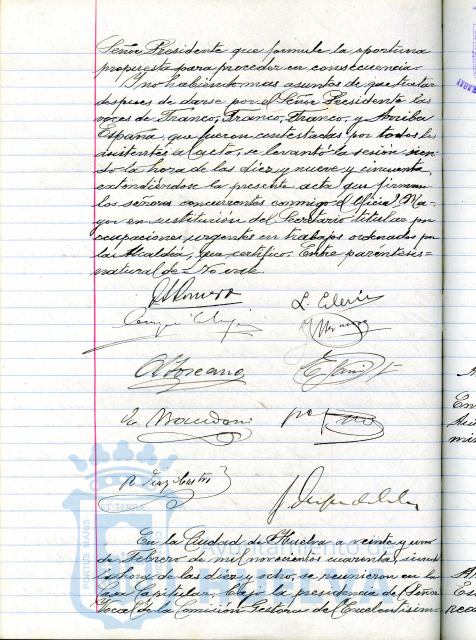 Señor Presidente que formule la oportuna
propuesta para proceder en consecuencia.
Y no habiendo mas asuntos de que tratar
despues de darse por el Señor Presidente las
voces de Franco, Franco, Franco, y Arriba
España, que fueron contestadas por todos los
asistentes al acto, se levantó la sesión sien-
do la hora de las diez y nueve y cincuenta,
extendiéndose la presente acta que firman
los señores concurrentes conmigo el Oficial Ma-
yor en sustitución del Secretario titular por
ocupaciones urgentes en trabajos ordenados por
la Alcaldía, que certifico. Entre paréntesis =
natural de = No vale
En la Ciudad de Huelva a veinte y uno
de Febrero de mil novecientos cuarenta, siendo
la hora de las diez y ocho, se reunieron en la
Casa Capitular, bajo la presidencia del Señor
Vocal de la Comisión Gestora del Excelentísimo
PORTUS MARIS
ET TERRÆ
Ayuntamiento de